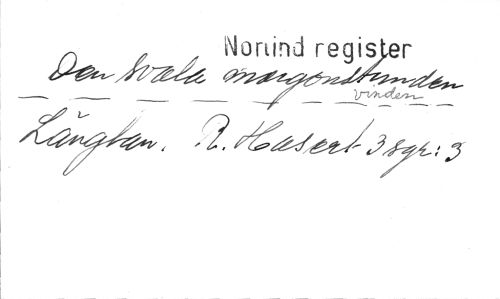 Norlind register
Den svala morgonstunden
vinden
Längtan. R. Hasert 3 sgr: 3